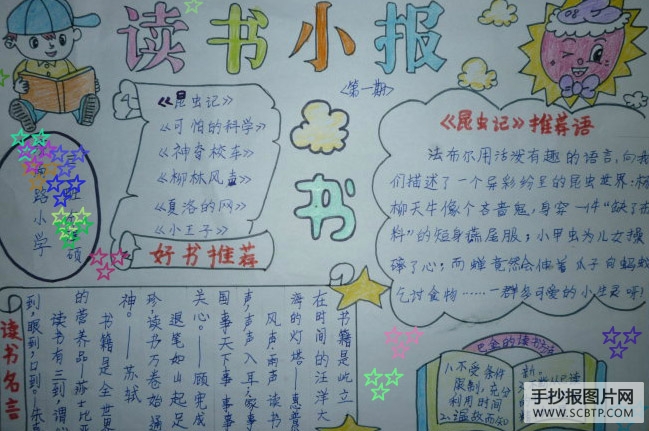 读书小报
<第一期>
08
《昆虫记》
《可怕的科学》
《神奇校车》
《柳林风声》
《夏洛的网》
《小王子》
好书推荐
书
路小学
硕
《昆虫记》推荐语
法布尔用活泼有趣的语言,向我
们描述了一个异彩纷呈的昆虫世界:杨
柳天牛像个吝啬鬼,身穿一件“缺了布
料”的短身燕尾服;小甲虫为儿女操
碎了心;而蝉竟然会伸着爪子向蚂蚁
乞讨食物……一群多可爱的小生灵呀!
读书名言
书籍是屹立
在时间的汪洋大
海的灯塔。—惠普
风声雨声读书
声,声声入耳;家事
国事天下事事事
关心。—顾宪成
退笔如山起足
珍,读书万卷始通
神。—苏轼
书籍是全世界
的营养品—莎士比亚
读书有三到,谓
到,眼到,口到。
巴金的读书方法
1.不受条件
限制,充分
利用时间
2.温故而知
新。
手抄报图片网
WWW.SCBTP.COM